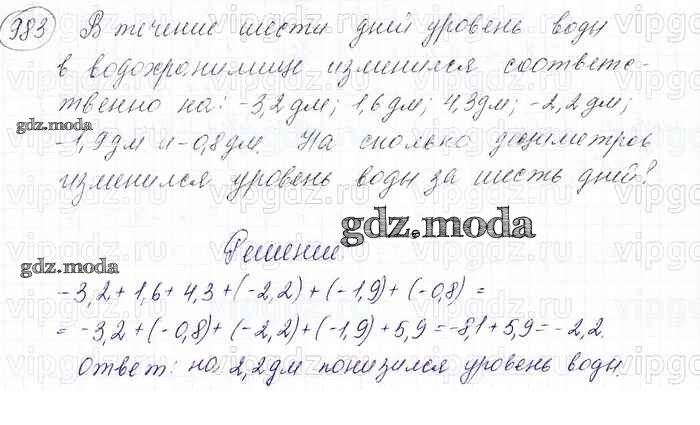 983 В течение шести дней уровень воды
в водохранилище изменился соответс-
твенно на: -3,2дм; 1,6дм; 4,3дм; -2,2дм;
gdz.moda
-1,9дм и -0,8дм. На сколько дециметров
изменился уровень воды за шесть дней?
gdz.moda
Решение.
gdz.moda
-3,2+1,6+4,3+(-2,2)+(-1,9)+(-0,8)=
=-3,2+(-0,8)+(-2,2)+(-1,9)+5,9=-8,1+5,9=-2,2.
Ответ: на 2,2дм понизился уровень воды.